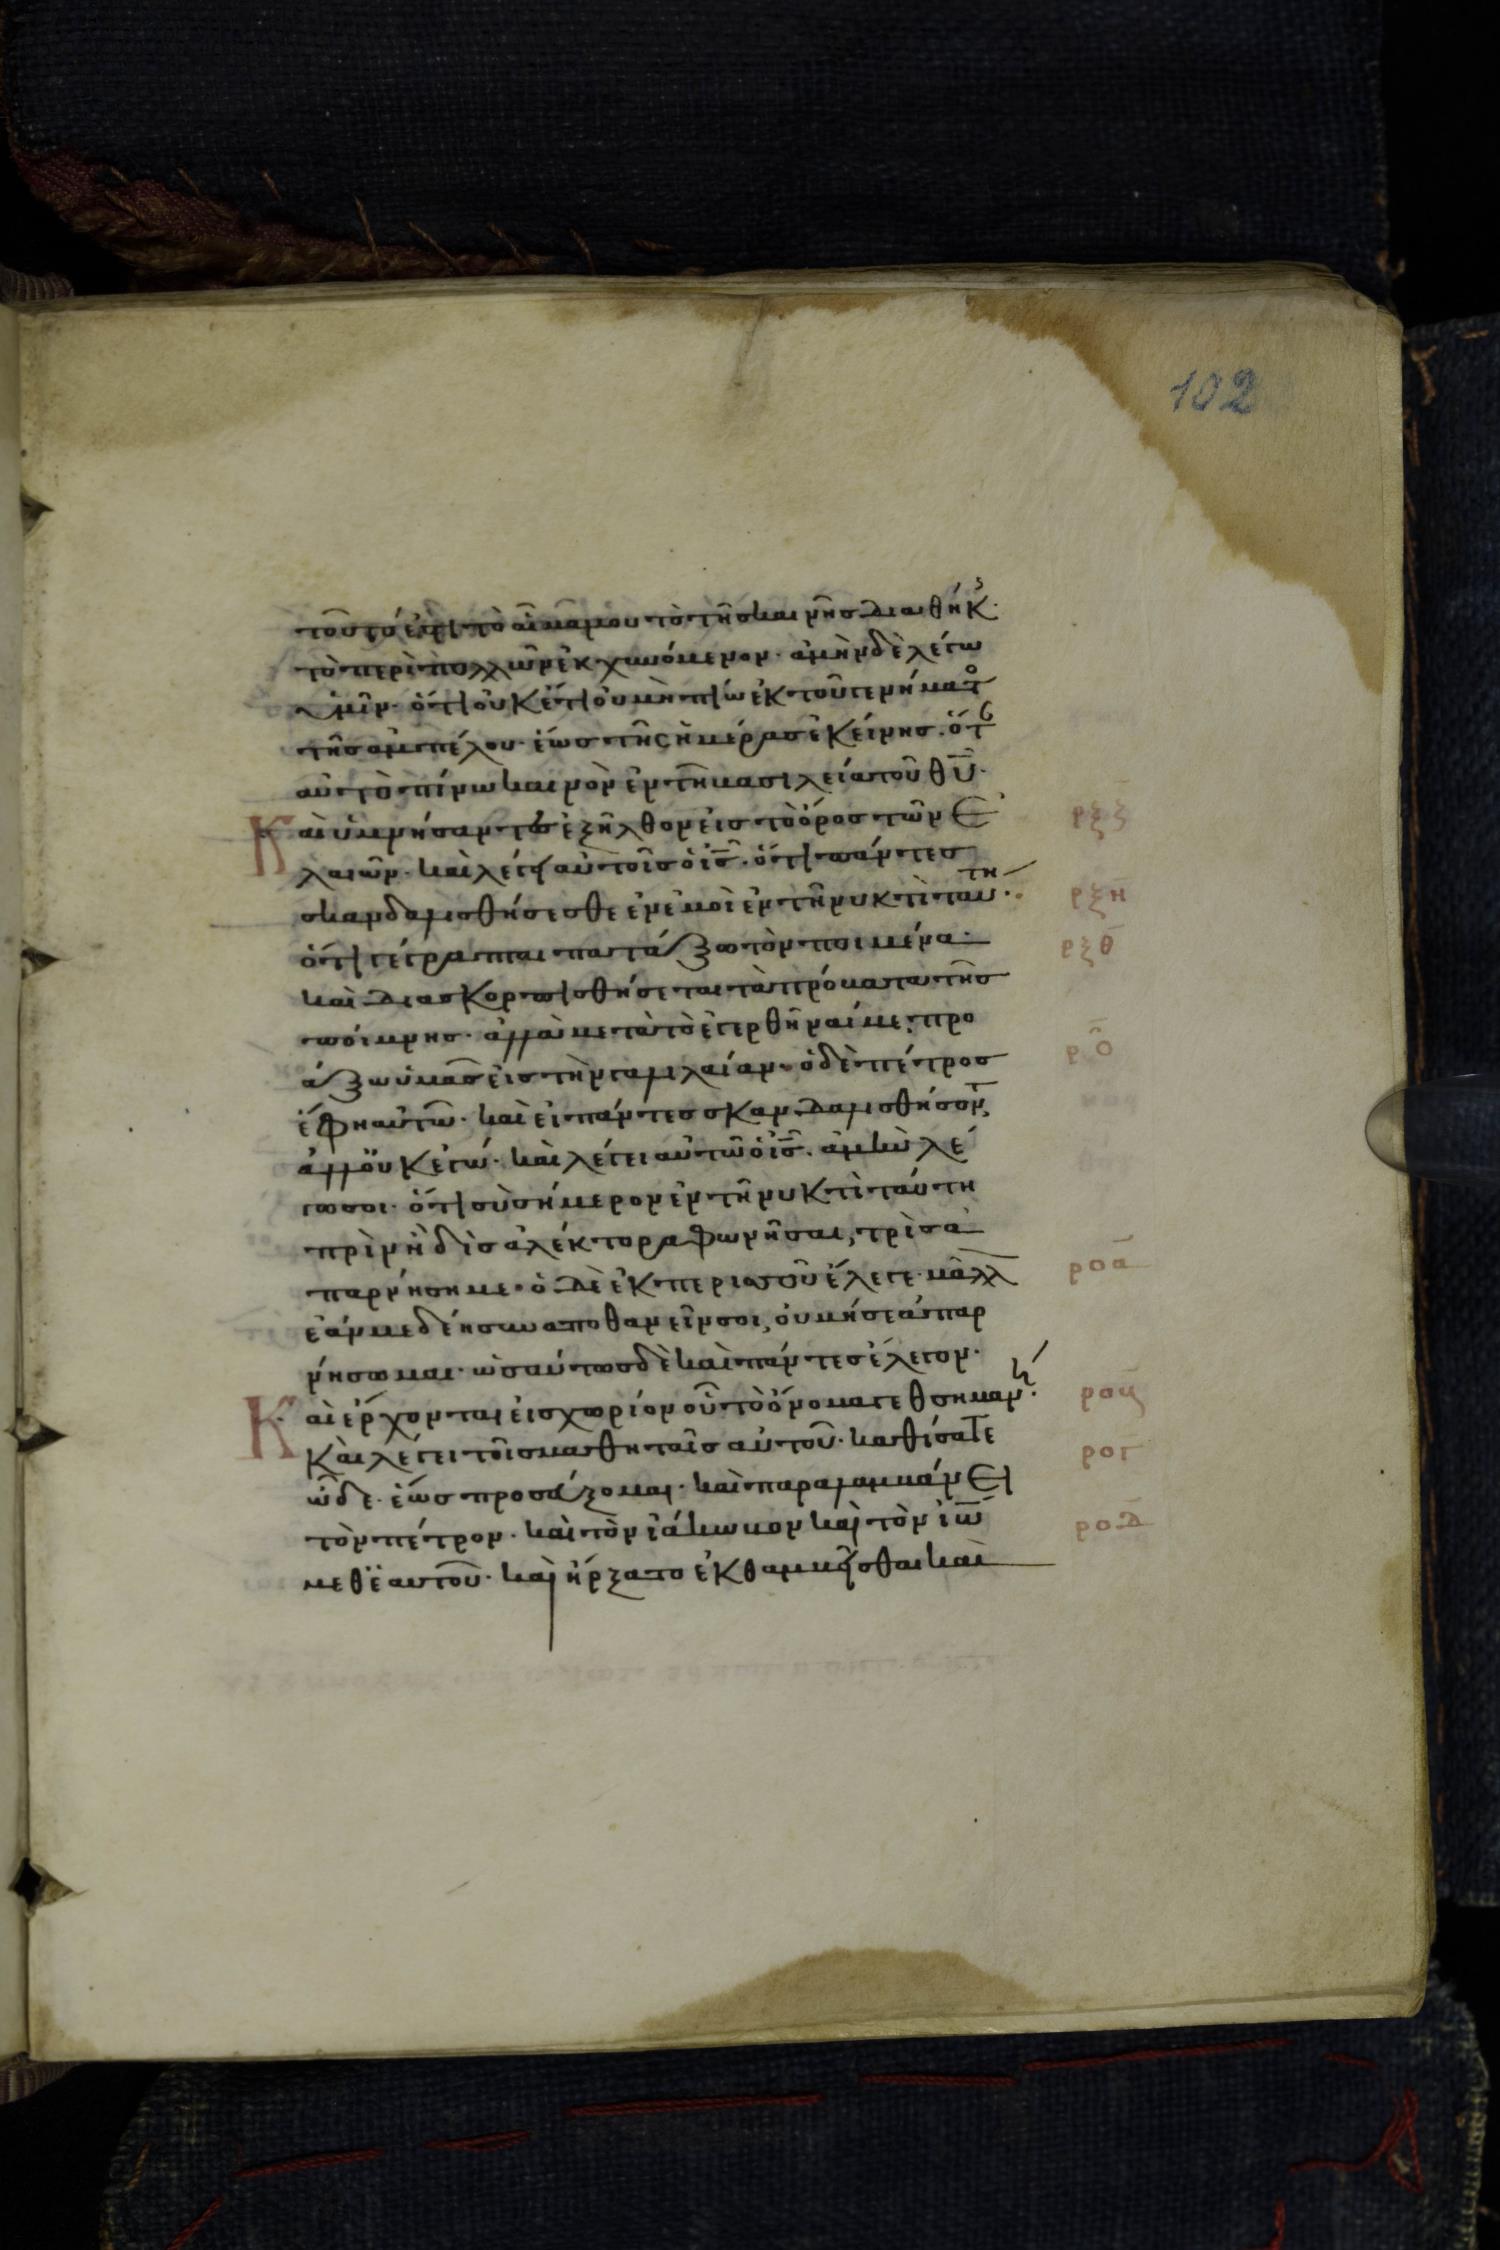 102
τοῦτό ἐστι τὸ αἷμά μου τὸ τῆς καινῆς διαθήκ·
τὸ περὶ πολλῶν ἐκχυνόμενον· ἀμὴν δὲ λέγω
ὑμῖν· ὅτι οὐκέτι οὐ μὴ πίω ἐκ τοῦ γενήματ
τῆς ἀμπέλου· ἕως τῆς ἡμέρας ἐκείνης· ὅτ
αὐτὸ πίνω καινὸν ἐν τῇ βασιλεία τοῦ θυ·
Καὶ ὑμνήσαντες ἐξῆλθον εἰς τὸ ὄρος τῶν ἐ ρξζ
λαιῶν· καὶ λέγει αὐτοῖς ὁ ις· ὅτι πάντες
σκανδαλισθήσεσθε ἐν ἐμοὶ ἐν τῇ νυκτὶ ταυτη· ρξη
ὅτι γέγραπται πατάξω τὸν ποιμένα· ρξθ
καὶ διασκορπισθήσεται τὰ πρόβατα τῆς
ποίμνης· ἀλλὰ μετὰ τὸ ἐγερθῆναί με, προ
άξω ὑμᾶς εἰς τὴν γαλιλαίαν· ὁ δὲ πέτρος ρο
ἔφη αὐτῶ· καὶ εἰ πάντες σκανδαλισθήσοντ,
ἀλλ' οὐκ ἐγώ· καὶ λέγει αὐτῶ ὁ ις· ἀμὴν λέ
γω σοι· ὅτι σὺ σήμερον ἐν τῇ νυκτὶ ταύτη
πρὶν ἢ δὶς ἀλέκτορα φωνῆσαι, τρὶς ἀ
παρνήση με· ὁ δὲ ἐκ περισσοῦ ἔλεγε μᾶλλ ροα
ἐάν με δέη συναποθανεῖν σοι, οὐ μή σε ἀπαρ
νήσωμαι· ὡσαύτως δὲ καὶ πάντες ἔλεγον·
Καὶ ἔρχονται εἰς χωρίον οὗ τὸ ὄνομα γεθσημανή· ροβ
Καὶ λέγει τοῖς μαθηταῖς αὐτοῦ· καθίσατε ρογ
ὧδε· ἕως προσεύξομαι· καὶ παραλαμβάνει
τὸν πέτρον· καὶ τὸν ἰάκωβον καὶ τὸν ἰω ροδ
μεθ' ἑαυτοῦ· καὶ ἤρξατο ἐκθαμβεῖσθαι καὶ